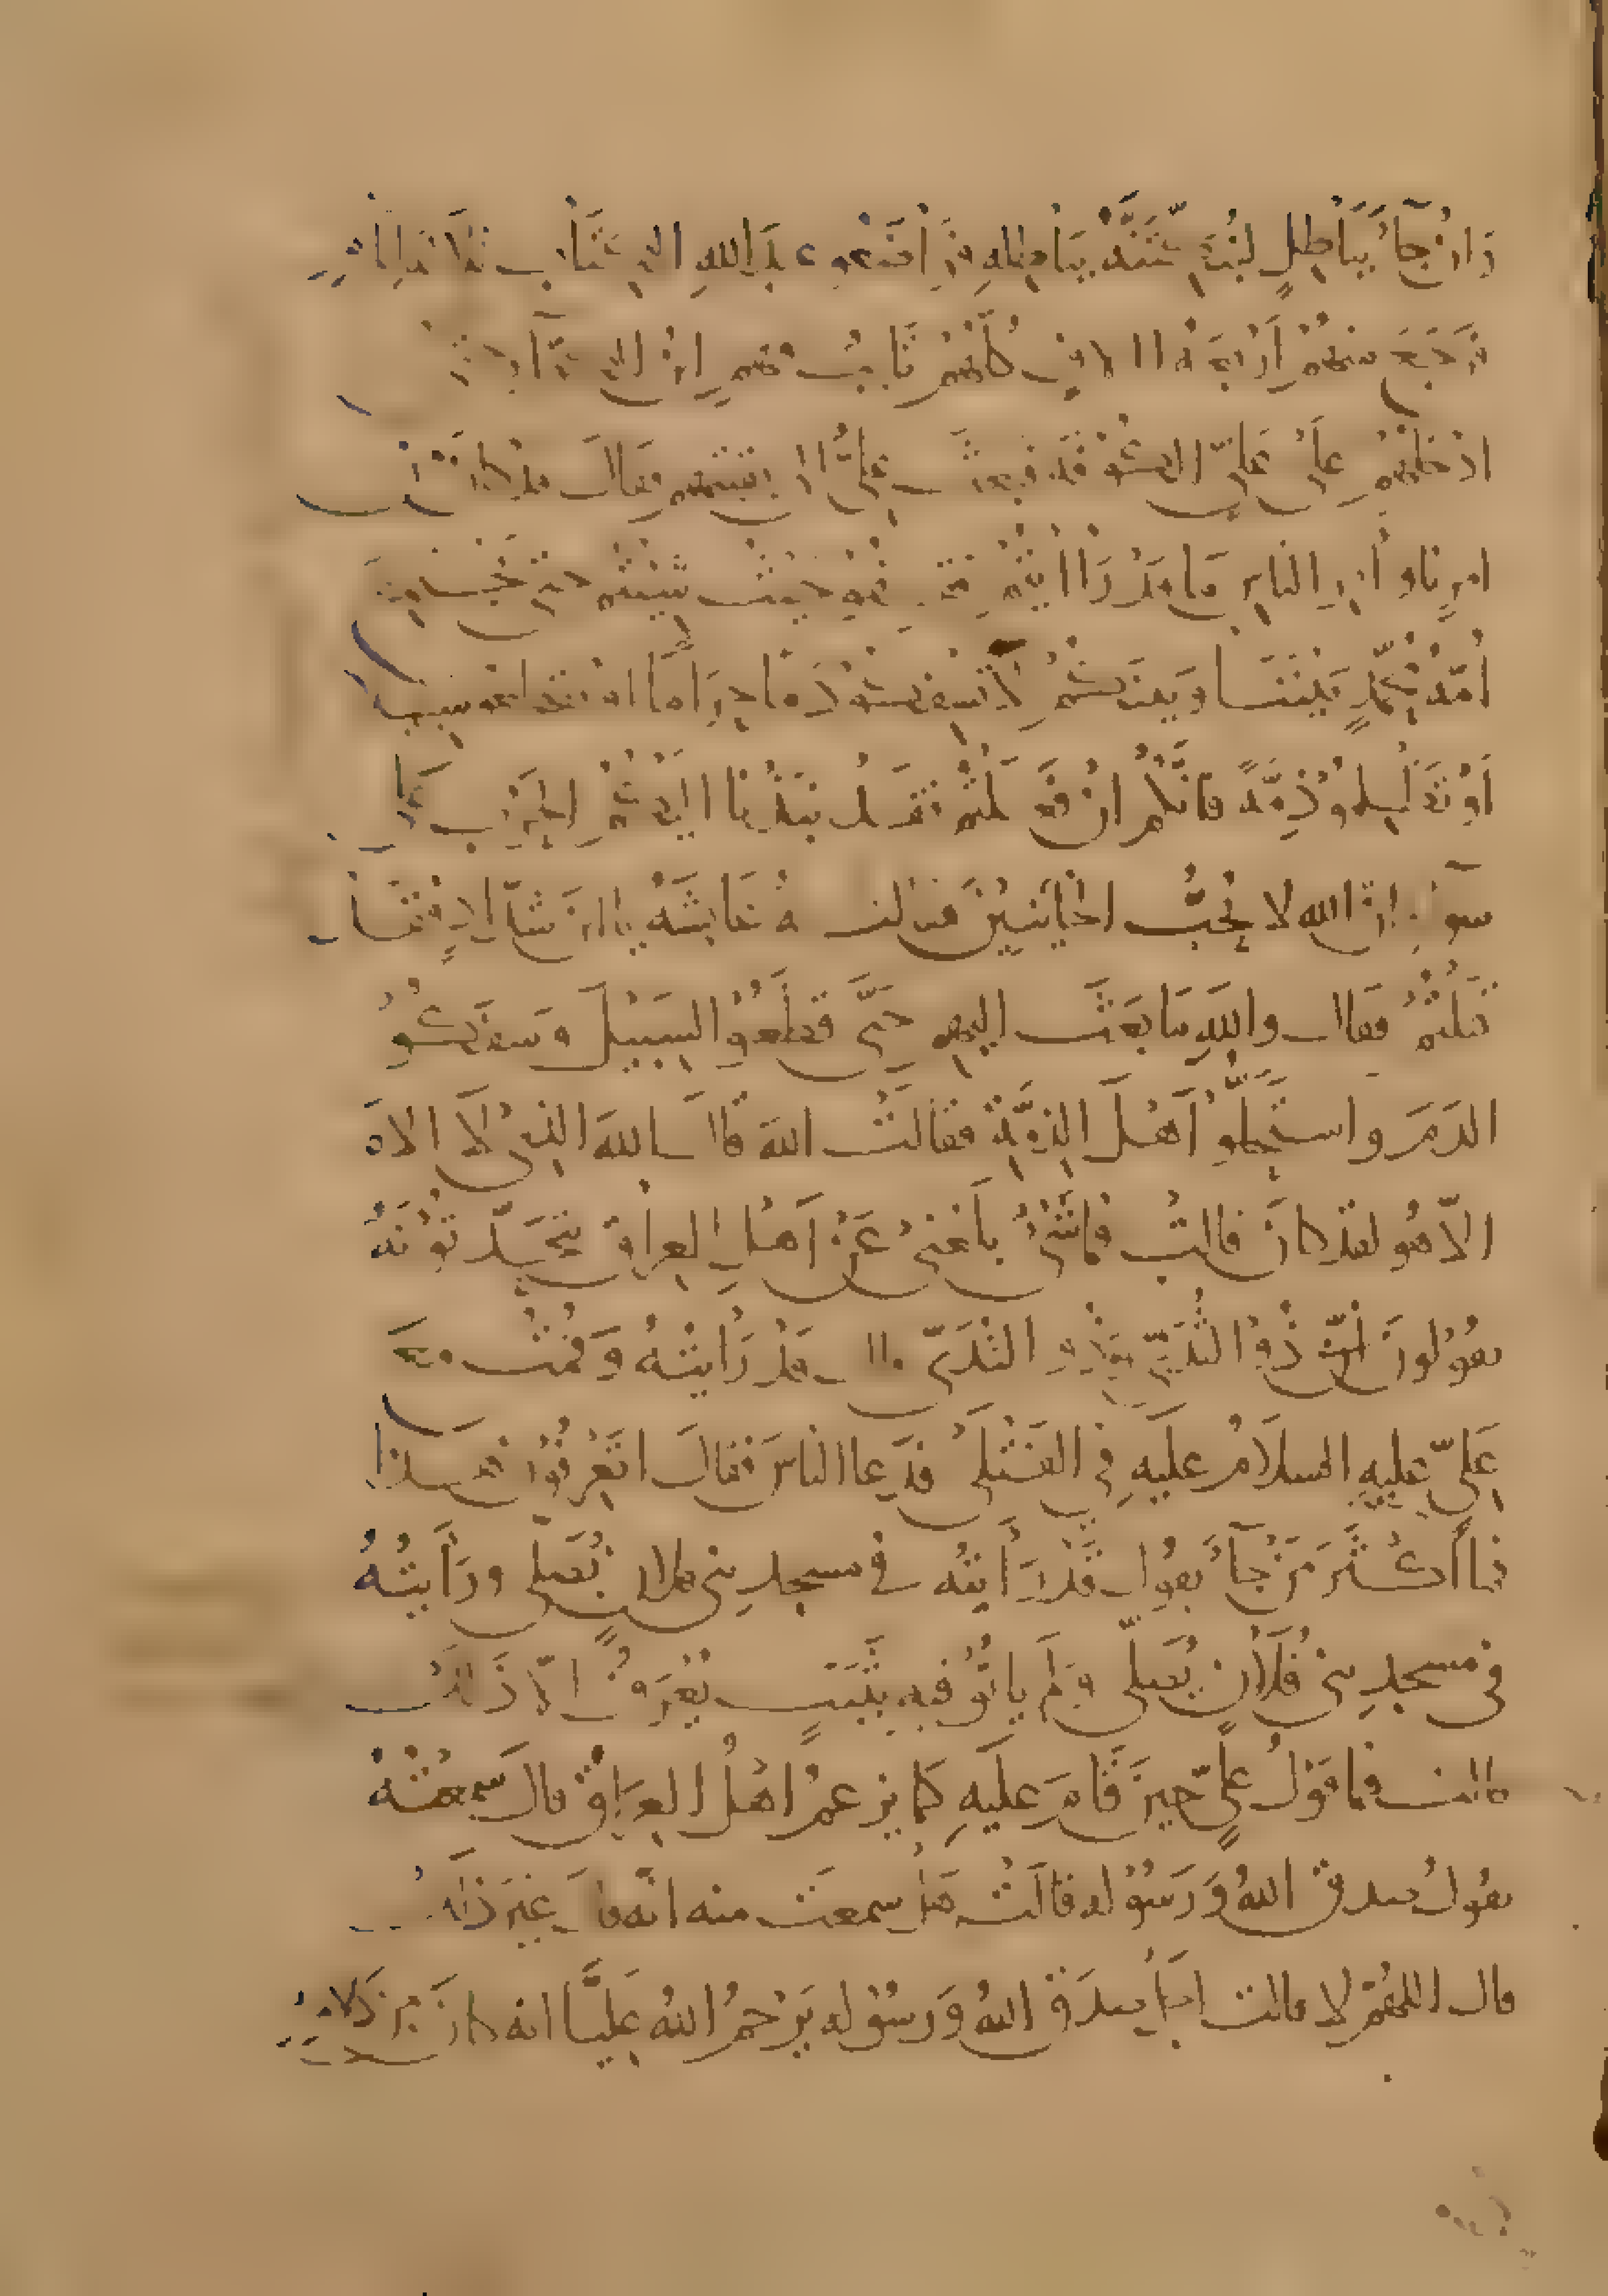 وان جآء بباطل لنبكتنه بباطله فواضعوه عبد الله الكتاب ثلاثة ايام
فرجع منهم اربعة الاف كلهم تايب فيهم ابن الكوآ حتى
ادخلهم على علي الكوفة فبعث علي الى بقيتهم فقال قد كان من
امرنا وامر الناس ما قد رأيتم فقفوا حيث شيتم حتى تجتمع
امة محمد بيننا وبينكم ان لا تسفكوا دما حراما او تقطعوا سبيلا
او تظلموا ذمة فانكم ان فعلتم فقد نبذنا اليكم الحرب على
سوآء ان الله لا يحب الخاينين فقالت له عايشة يابن شداد فقد
قتلهم فقال والله ما بعث اليهم حتى قطعوا السبيل وسفكوا
الدم واستحلوا اهل الذمة فقالت الله قال الله الذي لا اله
الا هو لقد كان قالت فما شئ بلغني عن اهل العراق يتحدثونه
يقولون ذو الثدي وذو الثدي قال قد رأيته وقمت مع
علي عليه السلام عليه في القتلى فدعا الناس فقال اتعرفون هذا
فما أكثر من جآء يقول قد رأيته في مسجد بني فلان يصلي ورأيته
في مسجد بني فلان يصلي ولم ياتوا فيه بثبت يعرف الا ذلك
قالت فما قول علي حين قام عليه كما يزعم اهل العراق قال سمعته
يقول صدق الله ورسوله قالت هل سمعت منه انه قال غير ذلك
قال اللهم لا قالت اجل صدق الله ورسوله يرحم الله عليا انه كان من كلامه